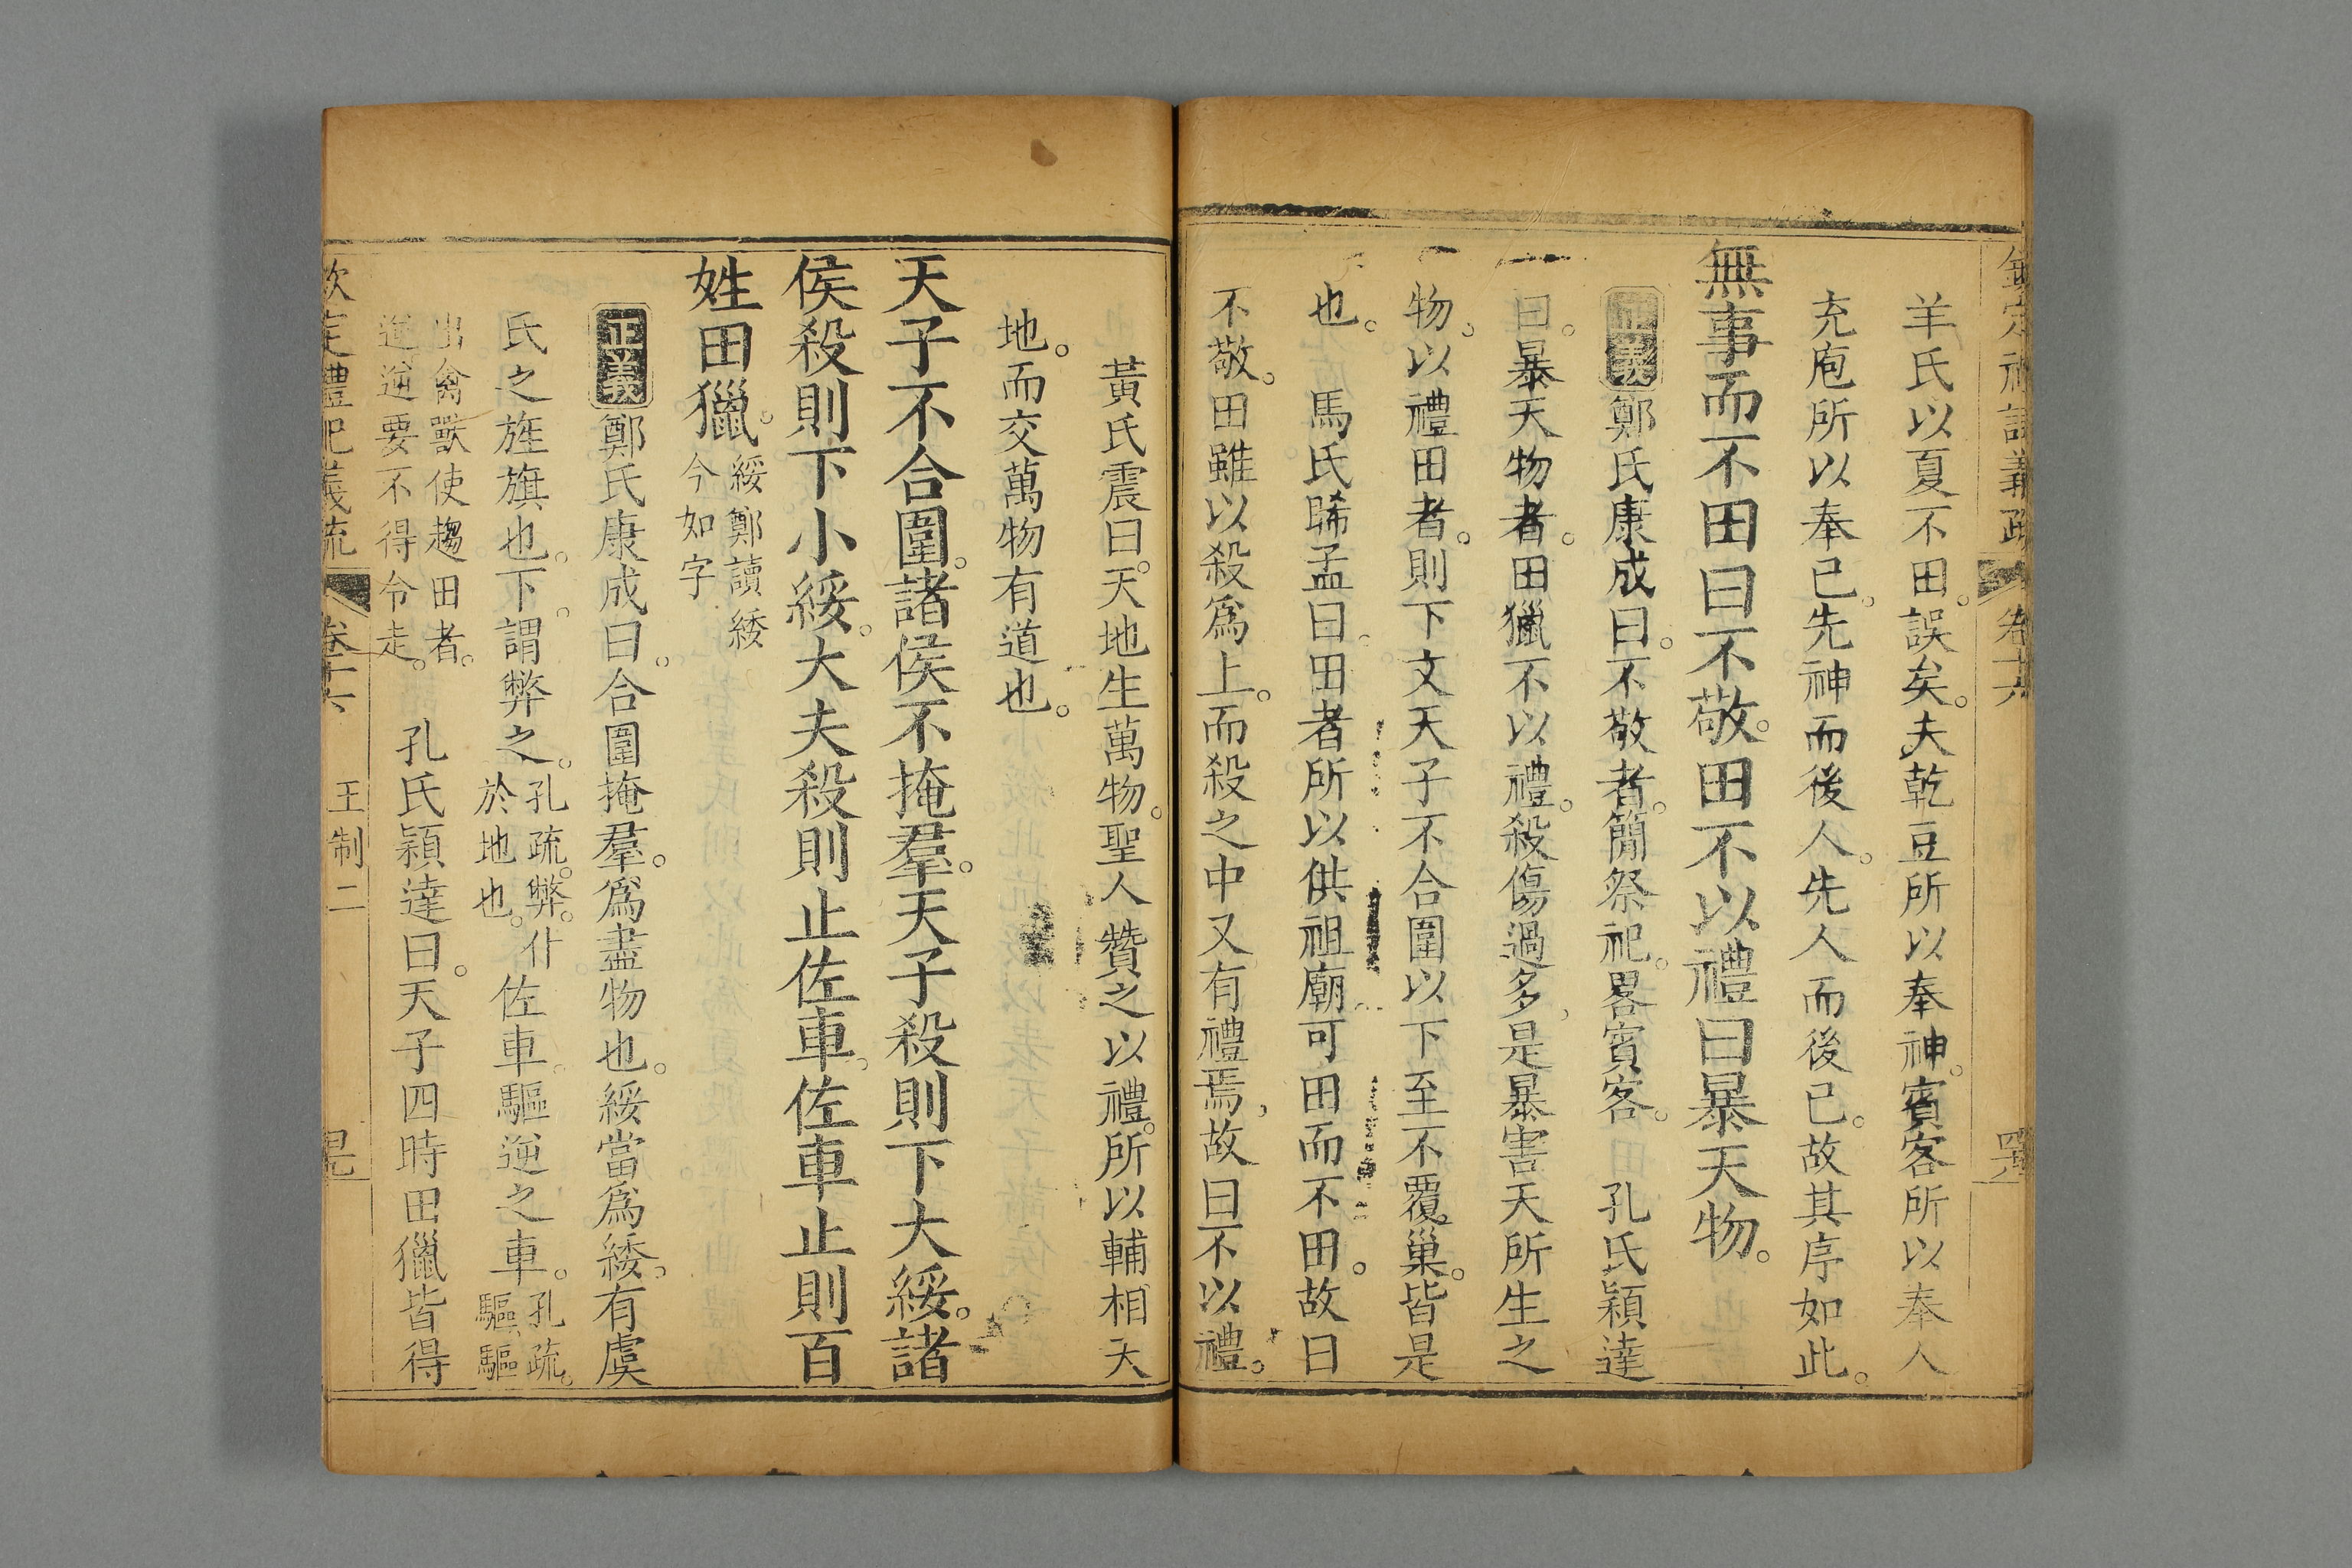 羊氏以夏不田。誤矣。夫乾豆所以奉神。賓客所以奉人
充庖所以奉己。先神而後人。先人而後己。故其序如此。
無事而不田曰不敬。田不以禮曰暴天物。
正義鄭氏康成曰。不敬者。簡祭祀。畧賓客。孔氏穎達
曰。暴天物者。田獵不以禮。殺傷過多、是暴害天所生之
物。以禮田者。則下文天子不合圍以下至不覆巢。皆是
也。馬氏晞孟曰。田者所以供祖廟可田而不田。故曰
不敬。田雖以殺爲上。而殺之中又有禮焉、故曰不以禮。
黃氏震曰。天地生萬物。聖人贊之以禮。所以輔相天
地。而交萬物有道也。
天子不合圍。諸侯不掩羣。天子殺則下大綏。諸
侯殺則下小綏。大夫殺則止佐車。佐車止則百
姓田獵。綏鄭讀綏
今如字
正義鄭氏康成曰。合圍掩羣。爲盡物也。綏當爲緌。有虞
氏之旌旗也。下。謂弊之。孔疏。弊。仆
於地也。佐車。驅逆之車。孔疏。
驅、驅
出禽獸使趨田者。
逆、逆要不得令走。孔氏穎達曰。天子四時田獵皆得
欽定禮記義疏
卷十六 王制二
卷十六